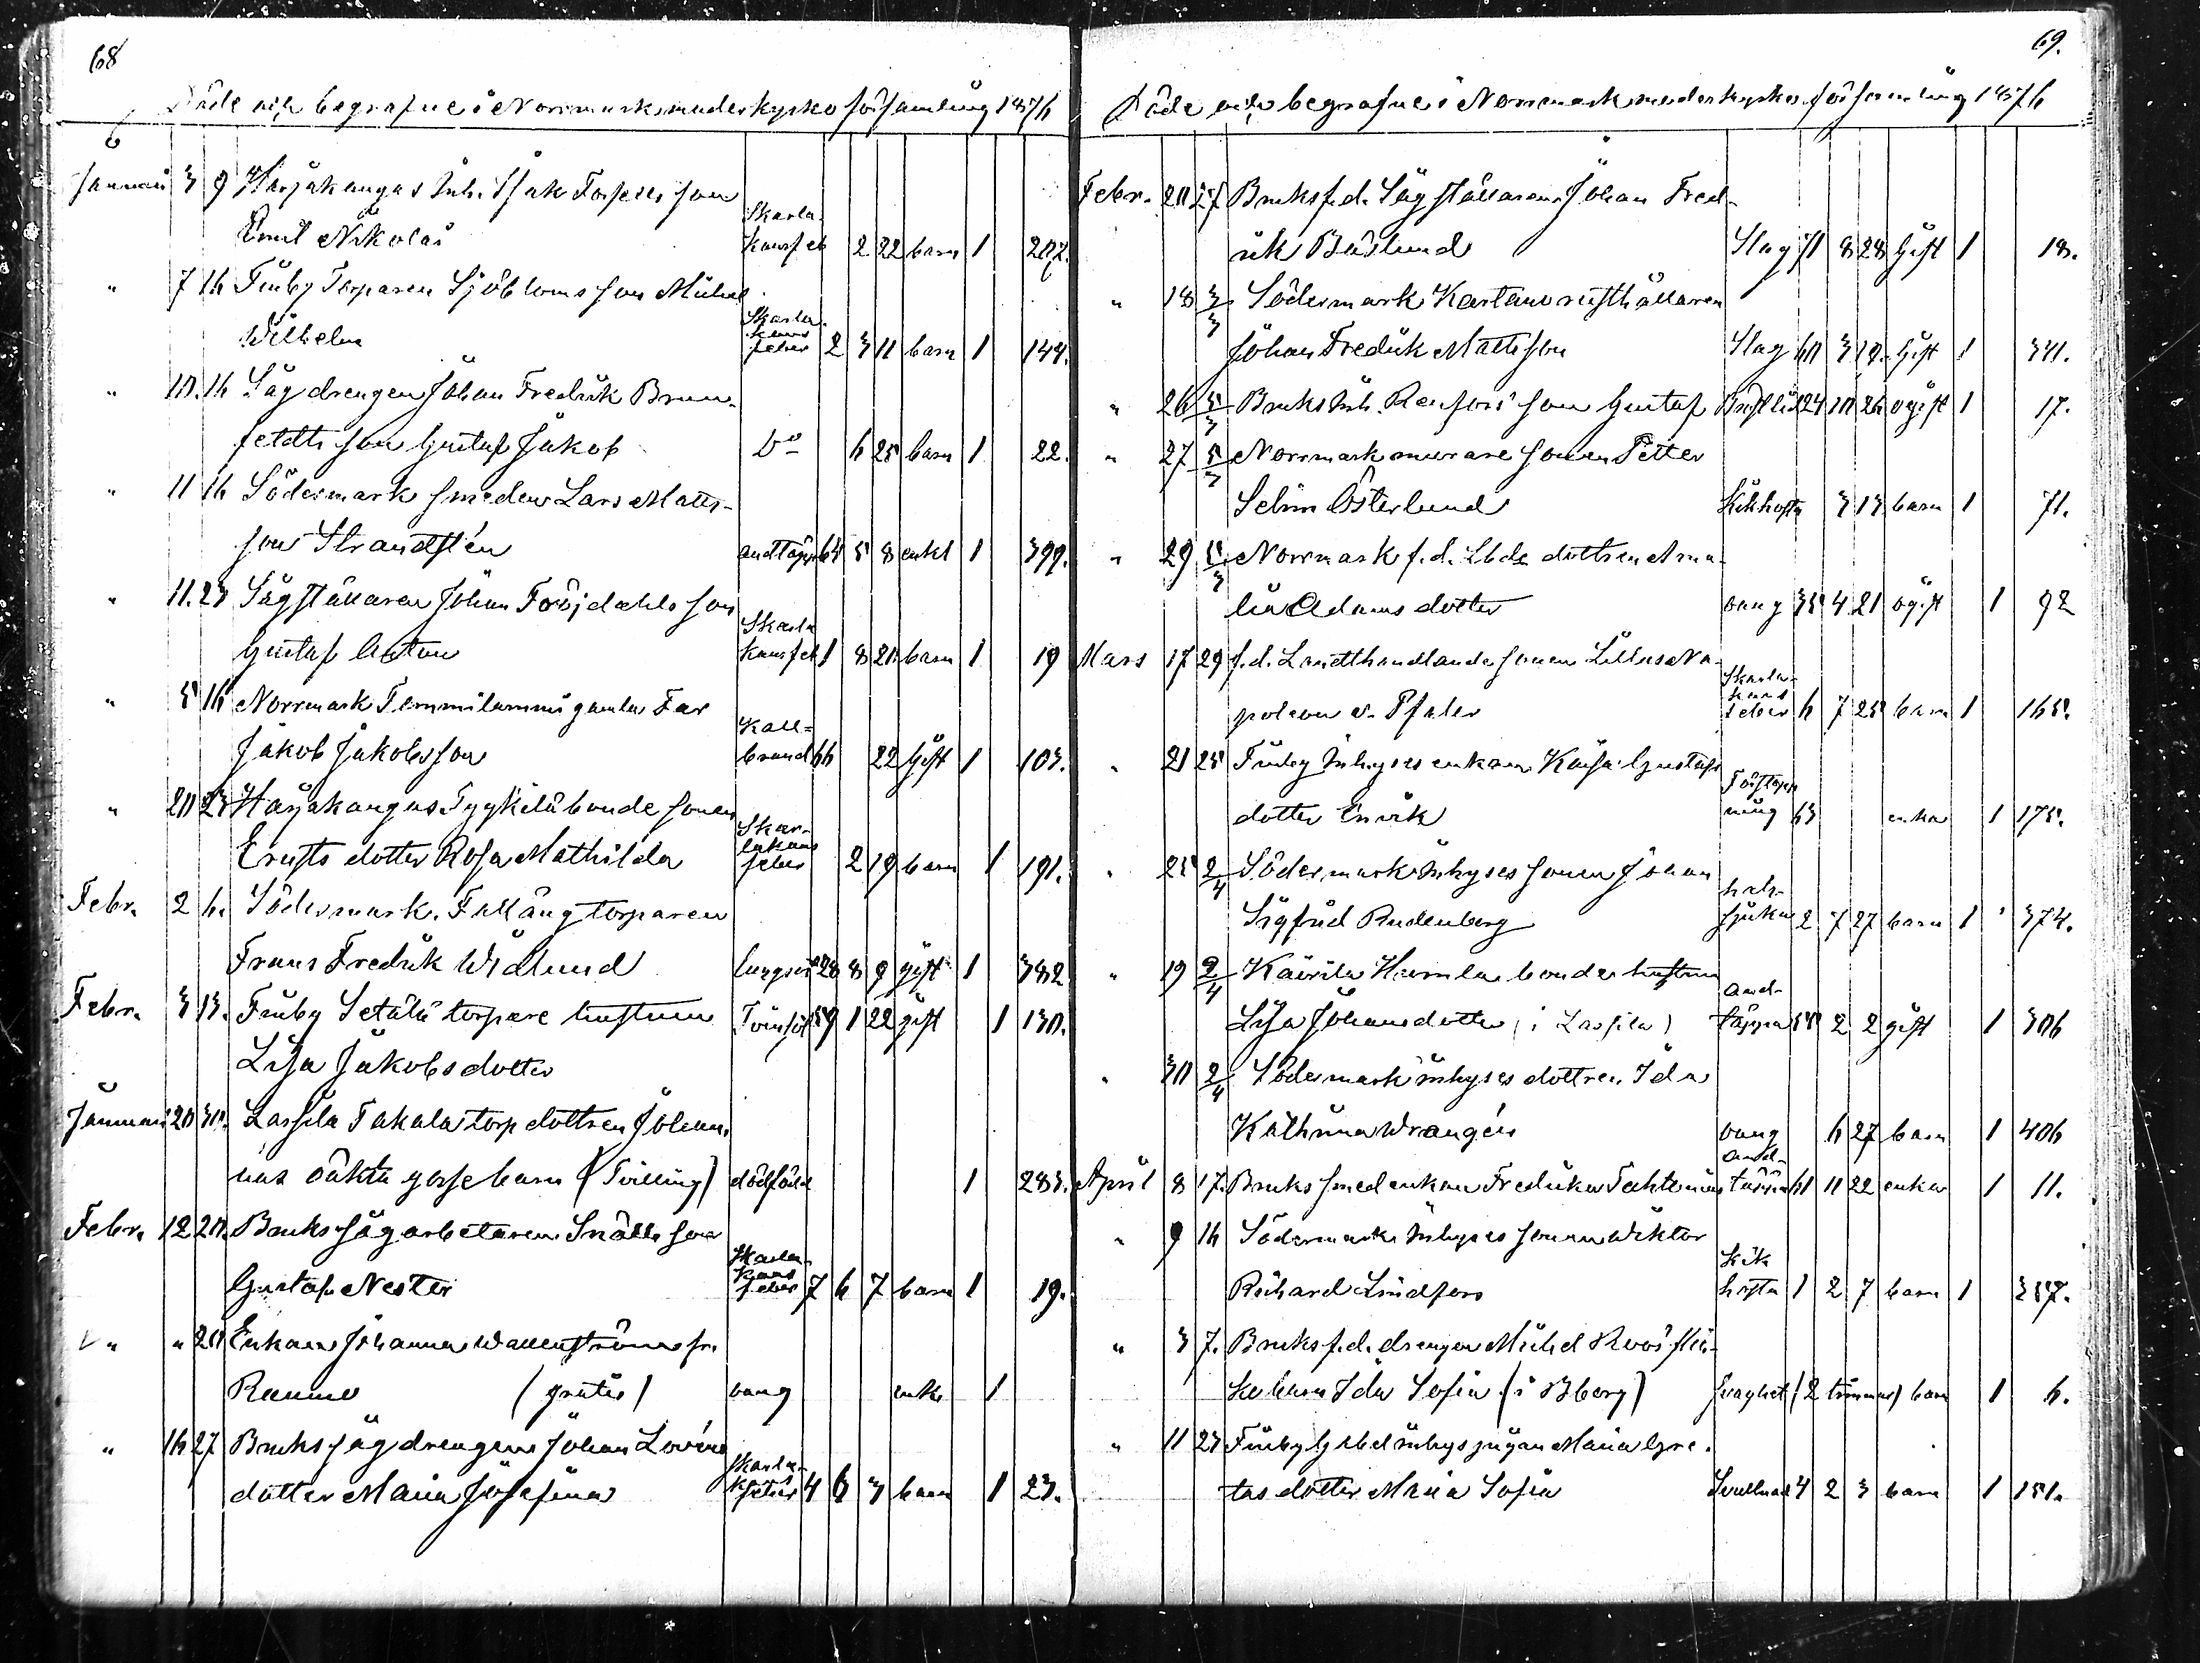 68
Döde och begrafne i Norrmarks moderkyrko församling 1876
Januari 3 9 Harjakangas Inh. Isak Forsells son
Emil Nikolai Skarla-kansfeb 2 22 barn 1 207.
" 7 16 Finby Torparen Sjöbloms son Mickel
Wilhelm Skarla-kans feber 2 3 11 barn 1 144.
" 10. 16 Sågdrengen Johan Fredrik Brun-
feldts son Gustaf Jakob Do 6 25 barn 1 22.
" 11 16 Södermark smeden Lars Matts-
son Strandstén andtäppa 64 5 8 enkl 1 399.
" 11. 23 Sågställaren Johan Fröjdahls son
Gustaf Anton Skarla kansfeb 1 8 21 barn 1 19
" 5 16 Norrmark Temmilammi gamla Far
Jakob Jakobsson Kall-brand 66 22 Gift 1 103.
" 20 23 Harjakangas Tyykilä bonde sonen
Ernsts dotter Rosa Mathilda Skar-lakans feber 2 19 barn 1 191.
Febr. 2 6. Södermark. Fallång torparen
Frans Fredrik Widlund lungsot 28 8 9 gift 1 382
Febr. 3 13. Finby Setälä torpare hustrun
Lisa Jakobsdotter Tvinsot 59 1 22 gift 1 130.
Januari 20 30. Lassila Takala torp dottren Johan-
nas oäkta gosse barn (Tvilling) dödfödd 1 283.
Febr. 12 20. Bruks sågarbetaren Snälls son
Gustaf Nestor Skarla-kans feber 7 6 7 barn 1 19.
" " 20 Enkan Johanna Wallenströms fr.
Raumo (gratis) vang enka 1
" 16 27 Bruks sågdrengen Johan Lovéns
dotter Maria Josefina skarla-k feber 4 6 3 barn 1 23.
69.
Döde och begrafne i Norrmark moderkyrko församling 1876
Febr. 20 27 Bruks f.d. Sågställaren Johan Fred-
rik Baslund Slag 71 8 28 Gift 1 18.
" 18 3/3 Södermark Kartano rusthållaren
Johan Fredrik Mattsson Slag 60 3 19 Gift 1 341.
" 26 5/3 Bruks Inh. Renfors' son Gustaf Bröstlid 24 10 26 ogift 1 17.
" 27 5/3 Norrmark murare sonen Petter
Selim Österlund Kikhosta 3 13 barn 1 71.
" 29 5/3 Norrmark f.d. Lbds dottren Ama-
lia Adamsdotter vang 35 4 21 ogift 1 92
Mars 17 29 f.d. Landthandlande sonen Lillus Na-
poleon v. Pfaler Skarla-kans feber 6 7 25 barn 1 165.
" 21 25 Finby Inhyses enkan Kaisa Gustafs
dotter Enrik Förstopp-ning 63 enka 1 175.
" 25 2/4 Södermark Inhyses sonen Johan
Sigfrid Rudenberg hals-sjuka 2 7 27 barn 1 374.
" 19 2/4 Kairila Harnla bonde hustrun
Lisa Johansdotter (i Lassila) And-täppa 58 2 2 gift 1 306
" 30 2/4 Södermark inhyses dottren Ida
Kathrina Wrangén vang 6 27 barn 1 406
April 8 17. Bruks smed enkan Fredrika Tahtinen And-täppa 61 11 22 enka 1 11.
" 9 16 Södermark Inhyses sonen Wiktor
Richard Lindfors Kik hosta 1 2 7 barn 1 357.
" 3 7. Bruks f.d. drengen Mickel Roos' flic-
ko barn Ida Sofia (i Bborg) svaghet (2 timmar) barn 1 6.
" 11 23 Finby Gabel inhys pigan Maria Gre-
tas dotter Maria Sofia Svullnad 4 2 3 barn 1 151.